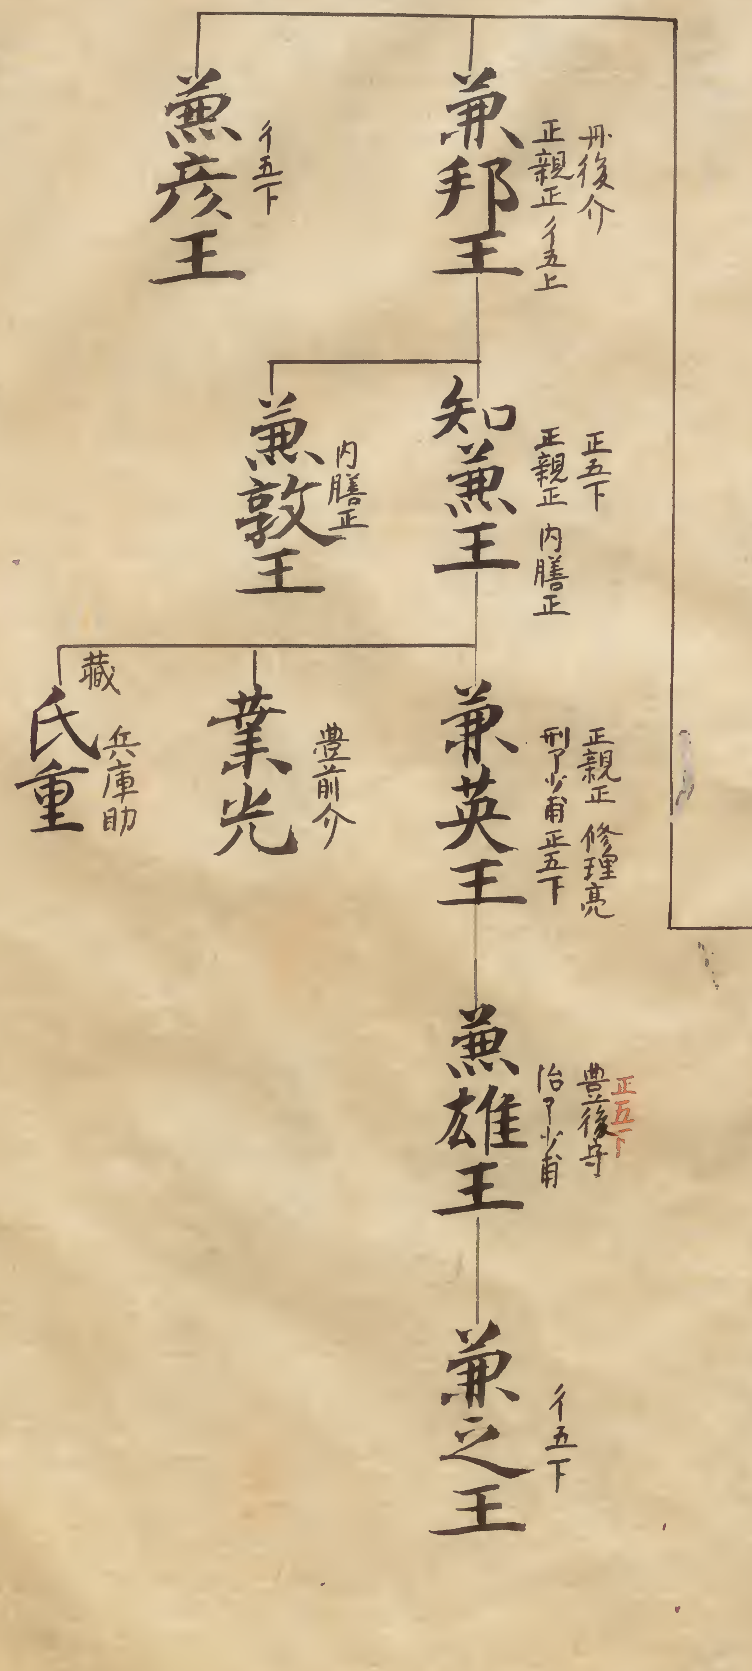 兼邦王
丹後介
正親正 彳五上
兼彦王
彳五下
知兼王
正五下
正親正 内膳正
兼敦王
内膳正
兼英王
正親正 修理亮
刑卩少甫正五下
業光
豊前介
蔵
氏重
兵庫助
兼雄王
正五下
豊後守
治卩少甫
兼之王
彳五下